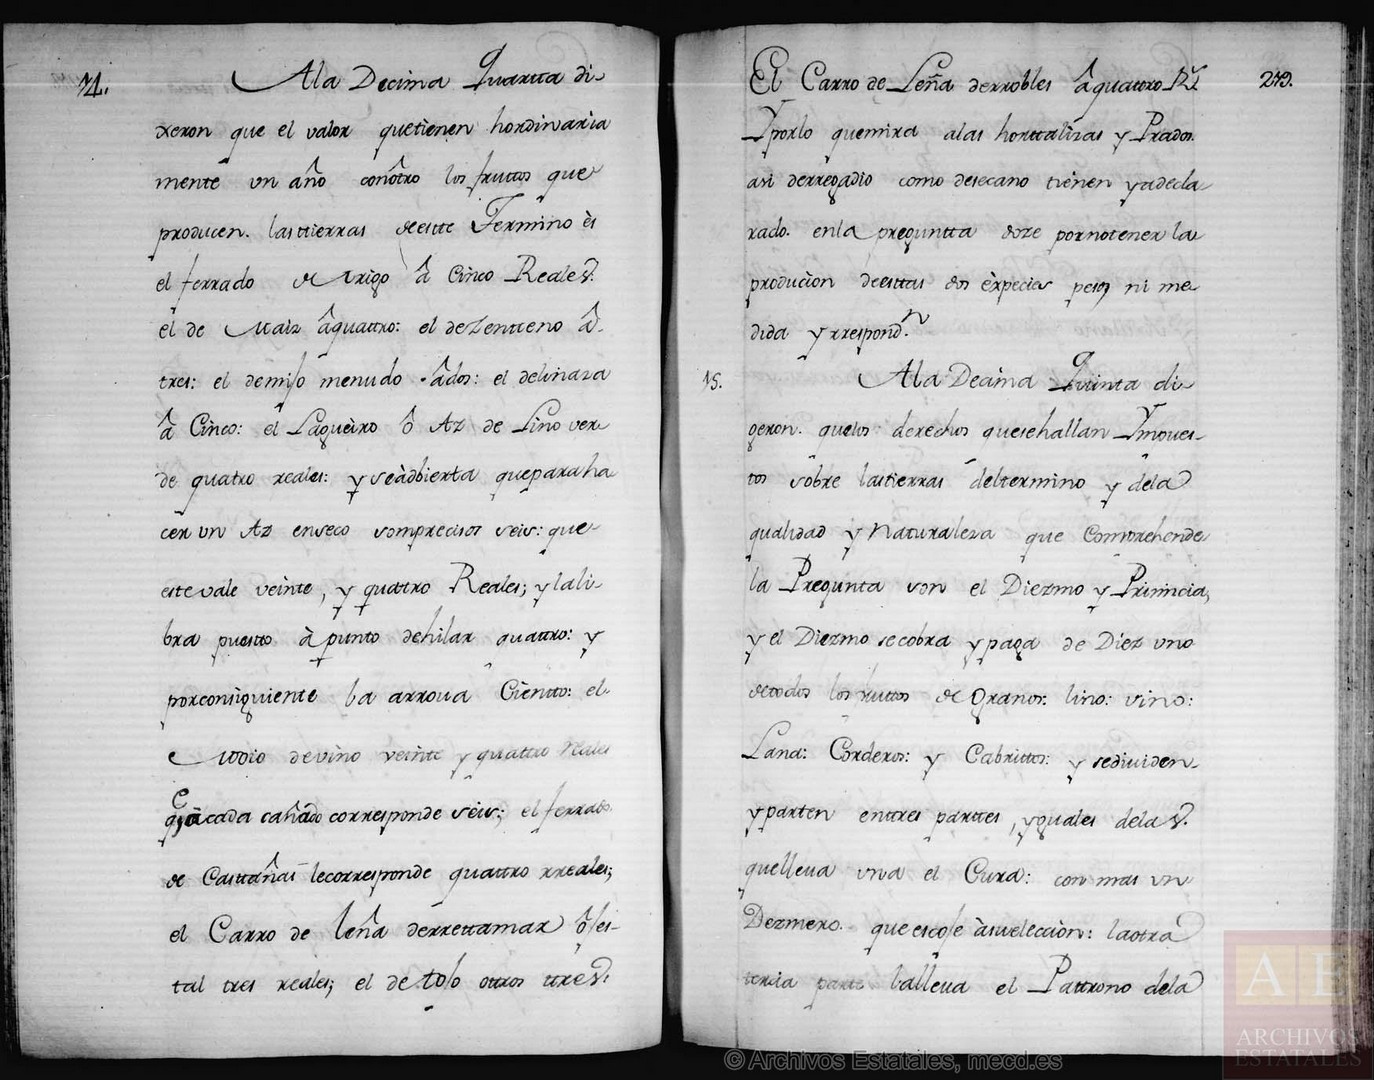 14. Ala Decima Quartta di-
xeron que el valor quetienen hordinaria
mente un año conôtro los fruttos que
producen. lasttierras deestte Termino ès
el ferrado de trigo â Cinco Reales.
el de Maiz âquattro: el deZentteno â
tres: el demijo menudo âdos: el delinaza
â Cinco: el Lagueiro ô Az de Lino ver-
de quatro reales: y seàdbierta queparaha
cer un Az enseco somprecisos seis: que
este vale veinte, y quattro Reales; y lali-
bra puesto à punto dehilar quattro: y
porconsiguiente la arroua Ciento: el
Modio devino veinte y quattro reales
q,e àcada cañado corresponde seis; el ferrado
de Castañas lecorresponde quattro rreales;
el Carro de leña derrettamar ô fes-
tal tres reales; el de tojo ottros ttres.
El Carro de Leña derrobles âquattro R.s 279.
Yporlo quemira alas horttalizas y Prados.
asi derregadio como desecano tienen yadecla
rado. enla preguntta doze pornotener la
producion deesttas dos èxpecies peso ni me-
dida y rrespond.n
15. Ala Decima Quinta di-
geron. quelos derechos quesehallan Ympues-
tos sobre lastierras deltermino y dela
qualidad y Naturaleza que Comprehende
la Pregunta son el Diezmo y Primicia,
y el Diezmo secobra y paga de Diez uno
detodos los fruttos de Granos: lino: vino:
Lana: Corderos: y Cabrittos: y sediuiden
y parten enttres parttes, yguales delas.
quelleua una el Cura: con mas un
Dezmero. queescoje àsuelecciòn: laotra
tercia parte lalleua el Pattrono dela
© Archivos Estatales, mecd.es
AE
ARCHIVOS
ESTATALES